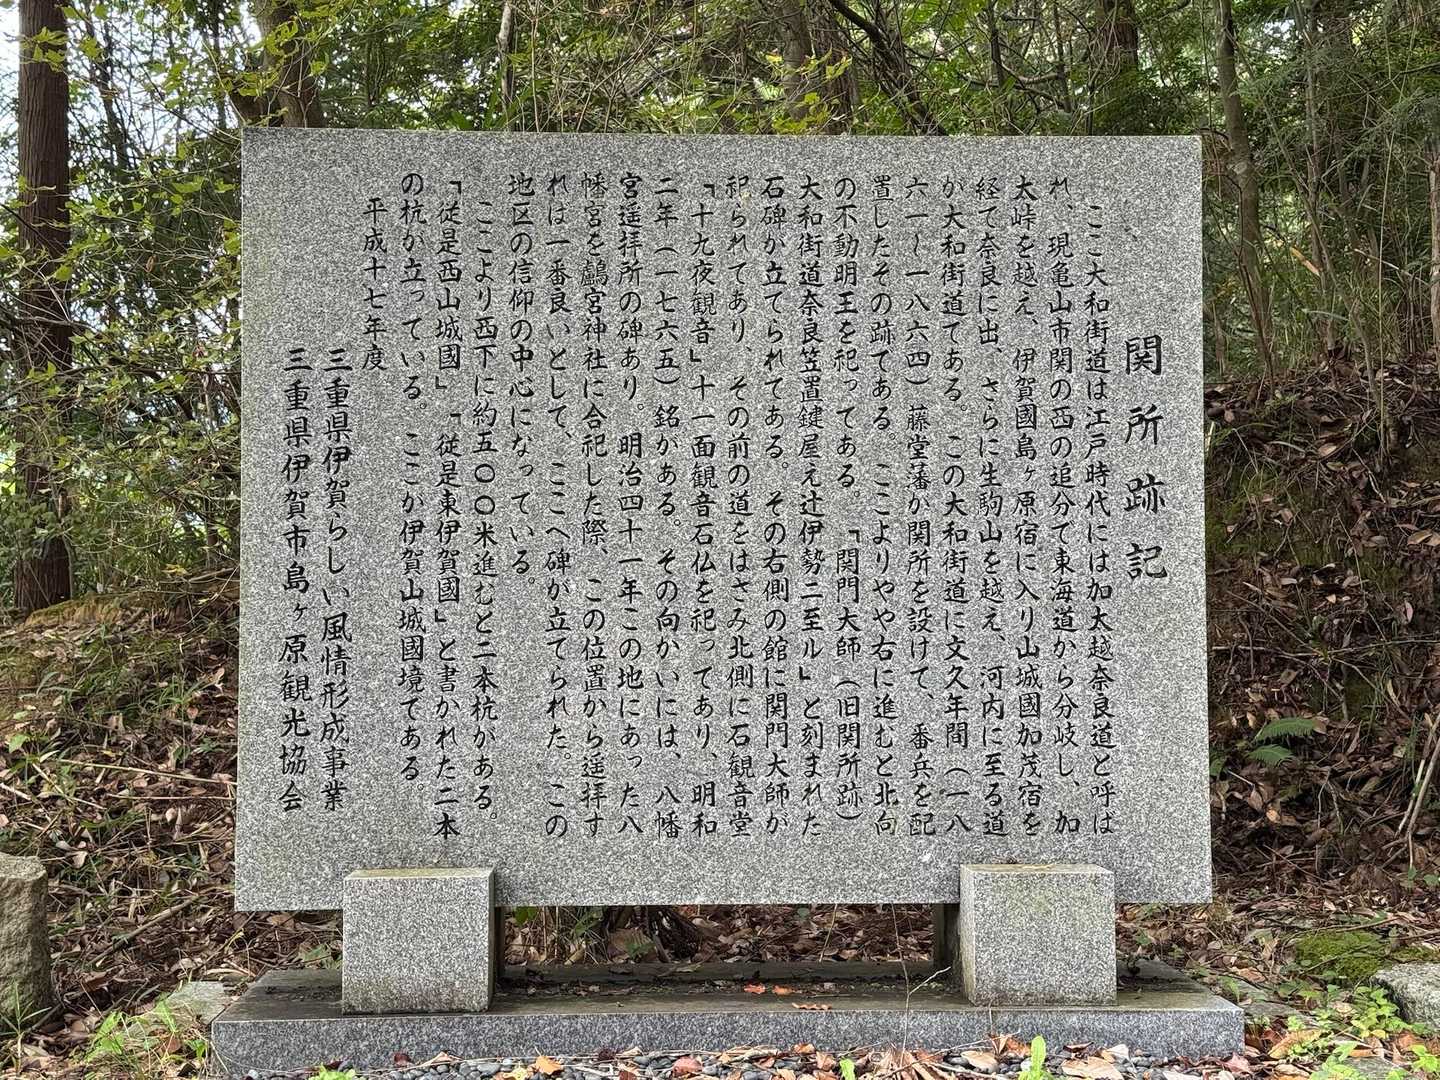 関所跡記
ここ大和街道は江戸時代には加太越奈良道と呼ば
れ、現亀山市関の西の追分で東海道から分岐し、加
太峠を越え、伊賀國島ヶ原宿に入り山城國加茂宿を
経て奈良に出、さらに生駒山を越え、河内に至る道
が大和街道である。この大和街道に文久年間（一八
六一〜一八六四）藤堂藩が関所を設けて、番兵を配
置したその跡である。ここよりやや右に進むと北向
の不動明王を祀ってある。「関門大師（旧関所跡）
大和街道奈良笠置鍵屋え辻伊勢二至ル」と刻まれた
石碑が立てられてある。その右側の館に関門大師が
祀られてあり、その前の道をはさみ北側に石観音堂
「十九夜観音」十一面観音石仏を祀ってあり、明和
二年（一七六五）銘がある。その向かいには、八幡
宮遥拝所の碑あり。明治四十一年この地にあった八
幡宮を鸕宮神社に合祀した際、この位置から遥拝す
れば一番良いとして、ここへ碑が立てられた。この
地区の信仰の中心になっている。
ここより西下に約五〇〇米進むと二本杭がある。
「従是西山城國」「従是東伊賀國」と書かれた二本
の杭が立っている。ここが伊賀山城國境である。
平成十七年度
三重県伊賀らしい風情形成事業
三重県伊賀市島ヶ原観光協会